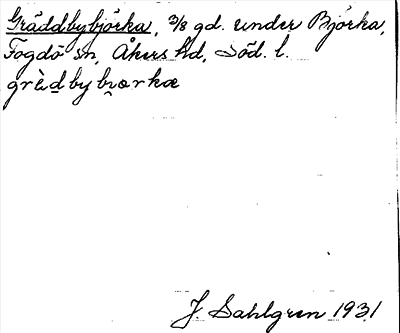 Gräddbybjörka, 2/8 gd. under Björka,
Fogdö sn, Åkers hd, Söd. l.
grèd by bjœrkæ
J. Sahlgren 1931